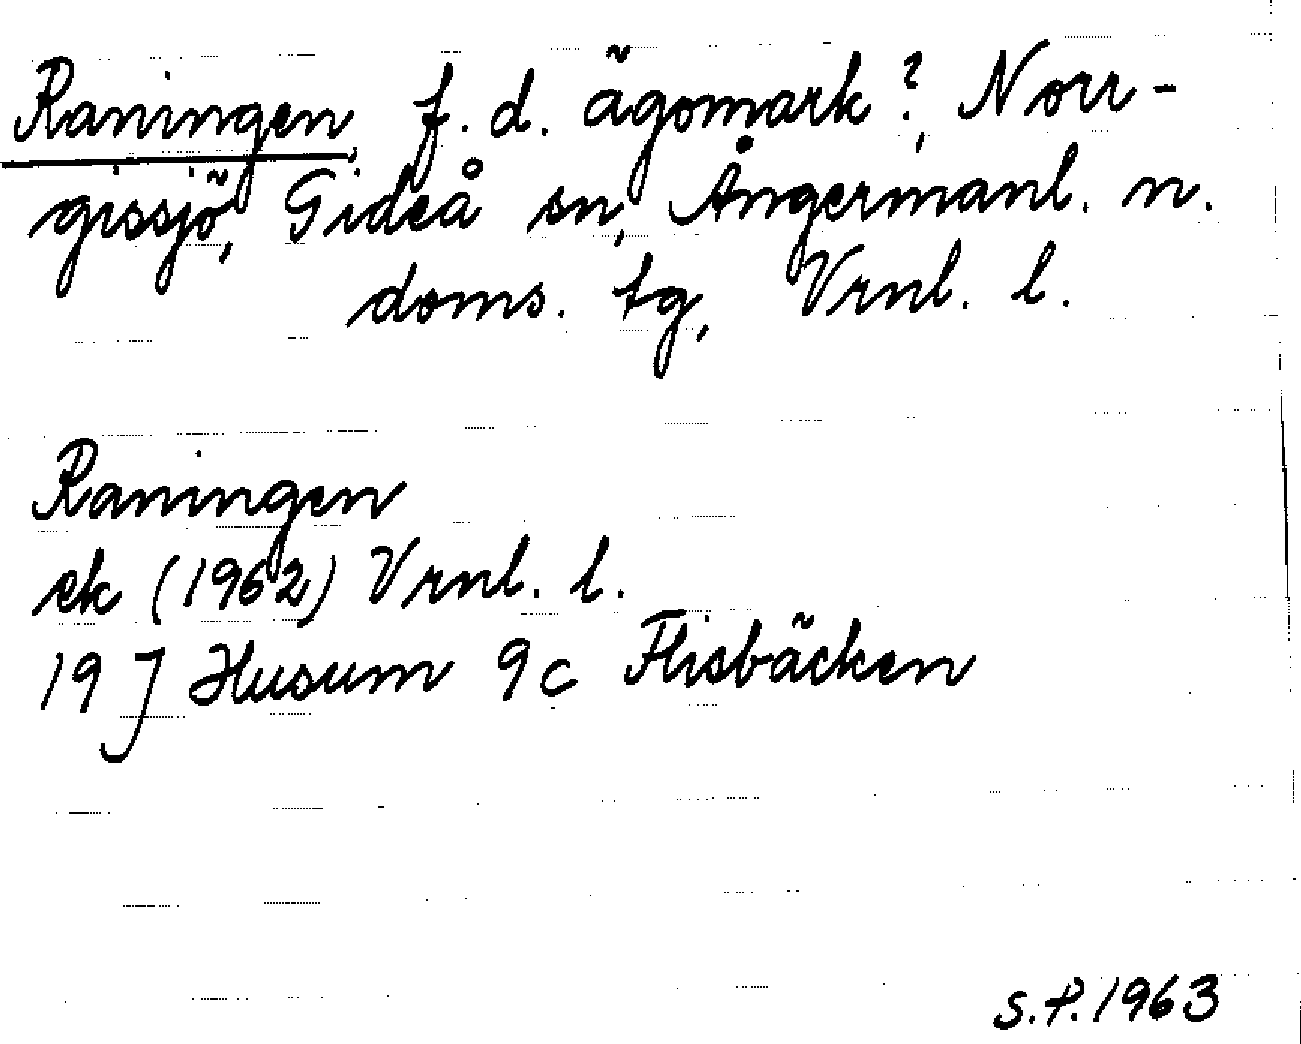 Raningen, f.d. ägomark?, Norr-
gissjö, Gideå sn, Ångermanl. n.
doms. tg, Vrnl. l.
Raningen
ek (1962) Vrnl. l.
19 J Husum 9c Flisbäcken
S.P. 1963